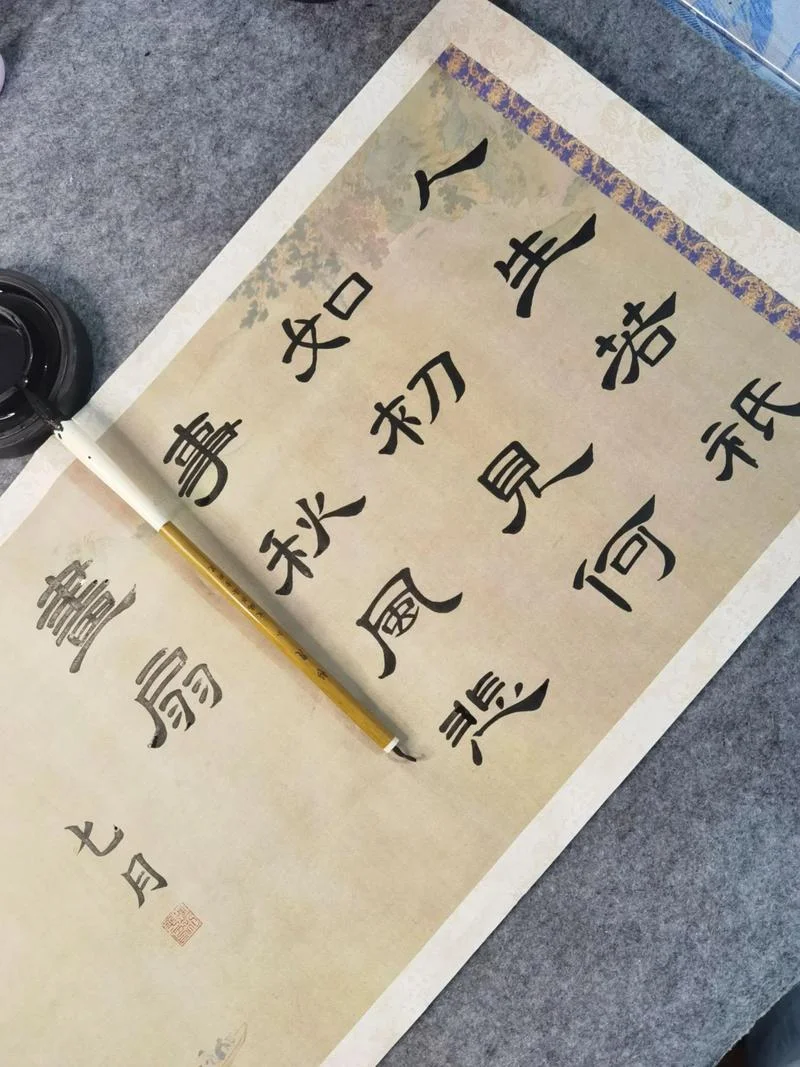 人生若祇
如初見何
事秋風悲
畫扇
七月